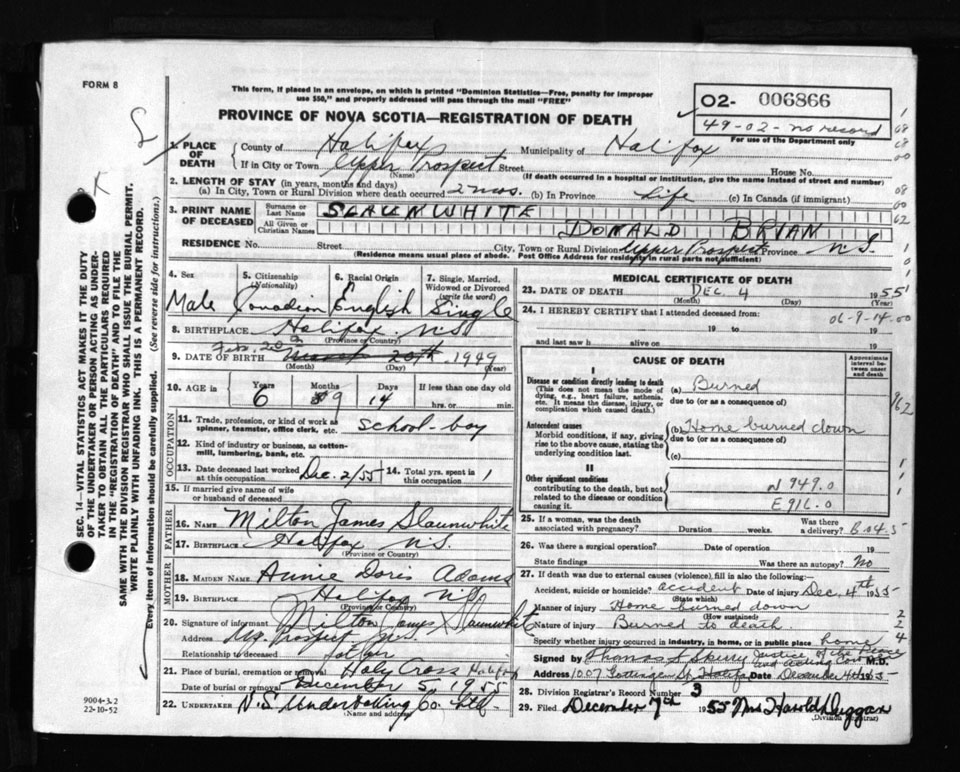 FORM 8
This form, if placed in an envelope, on which is printed "Dominion Statistics—Free, penalty for improper
use $50," and properly addressed will pass through the mail "FREE"
PROVINCE OF NOVA SCOTIA—REGISTRATION OF DEATH
02- 006866
49-02-no record
For use of the Department only
1. PLACE OF DEATH
County of Halifax Municipality of Halifax
If in City or Town Upper Prospect Street House No.
(Name) (If death occurred in a hospital or institution, give the name instead of street and number)
2. LENGTH OF STAY (in years, months and days)
(a) In City, Town or Rural Division where death occurred 2 mos. (b) In Province Life (c) In Canada (if immigrant)
3. PRINT NAME OF DECEASED
Surname or Last Name SLAUNWHITE
All Given or Christian Names DONALD BRIAN
RESIDENCE No. Street City, Town or Rural Division Upper Prospect Province N.S.
(Residence means usual place of abode. Post Office Address for residents in rural parts not sufficient)
4. Sex Male
5. Citizenship (Nationality) Canadian
6. Racial Origin English
7. Single, Married, Widowed or Divorced (write the word) Single
8. BIRTHPLACE Halifax N.S.
(Province or Country)
Feb. 20
9. DATE OF BIRTH March 20th 1949
(Month) (Day) (Year)
10. AGE in Years Months Days If less than one day old
6 9 14 hrs. or min.
OCCUPATION
11. Trade, profession, or kind of work as spinner, teamster, office clerk, etc. School-boy
12. Kind of industry or business, as cotton-mill, lumbering, bank, etc.
13. Date deceased last worked at this occupation Dec. 2/55 14. Total yrs. spent in this occupation 1
15. If married give name of wife or husband of deceased
FATHER
16. NAME Milton James Slaunwhite
17. BIRTHPLACE Halifax N.S.
(Province or Country)
MOTHER
18. MAIDEN NAME Annie Doris Adams
19. BIRTHPLACE Halifax N.S.
(Province or Country)
20. Signature of informant Milton James Slaunwhite
Address Up. Prospect N.S.
Relationship to deceased father
21. Place of burial, cremation or removal Holy Cross Halifax
Date of burial or removal December 5, 1955
22. UNDERTAKER N.S. Undertaking Co. Ltd.
(Name and address)
MEDICAL CERTIFICATE OF DEATH
23. DATE OF DEATH DEC. 4 1955
(Month) (Day) (Year)
24. I HEREBY CERTIFY that I attended deceased from:
06-9-14-00
19 to 19
and last saw h alive on 19
CAUSE OF DEATH
Approximate interval between onset and death
I
Disease or condition directly leading to death (a) Burned
(This does not mean the mode of dying, e.g., heart failure, asthenia, etc. It means the disease, injury, or complication which caused death.)
due to (or as a consequence of)
Antecedent causes (b) Home burned down
Morbid conditions, if any, giving rise to the above cause, stating the underlying condition last.
due to (or as a consequence of)
(c)
II
Other significant conditions
contributing to the death, but not related to the disease or condition causing it.
N 949.0
E 916.0
25. If a woman, was the death associated with pregnancy? Duration weeks. Was there a delivery?
26. Was there a surgical operation? Date of operation 19
State findings Was there an autopsy? No
27. If death was due to external causes (violence), fill in also the following:—
Accident, suicide or homicide? accident Date of injury Dec. 4th 1955
(State which)
Manner of injury Home burned down
(How sustained)
Nature of injury Burned to death.
Specify whether injury occurred in industry, in home, or in public place home
Signed by Justice of the Peace M.D.
Address 1007 Gottingen St. Halifax Date December 4th 1955
28. Division Registrar's Record Number 3
29. Filed December 7th 1955 Mrs Harold Duggan
(Division Registrar)
SEC. 14—VITAL STATISTICS ACT MAKES IT THE DUTY
OF THE UNDERTAKER OR PERSON ACTING AS UNDER-
TAKER TO OBTAIN ALL THE PARTICULARS REQUIRED
IN THE "REGISTRATION OF DEATH" AND TO FILE THE
SAME WITH THE DIVISION REGISTRAR WHO SHALL ISSUE THE BURIAL PERMIT.
WRITE PLAINLY WITH UNFADING INK. THIS IS A PERMANENT RECORD.
Every item of information should be carefully supplied. (See reverse side for instructions.)
9004-3.2
22-10-52